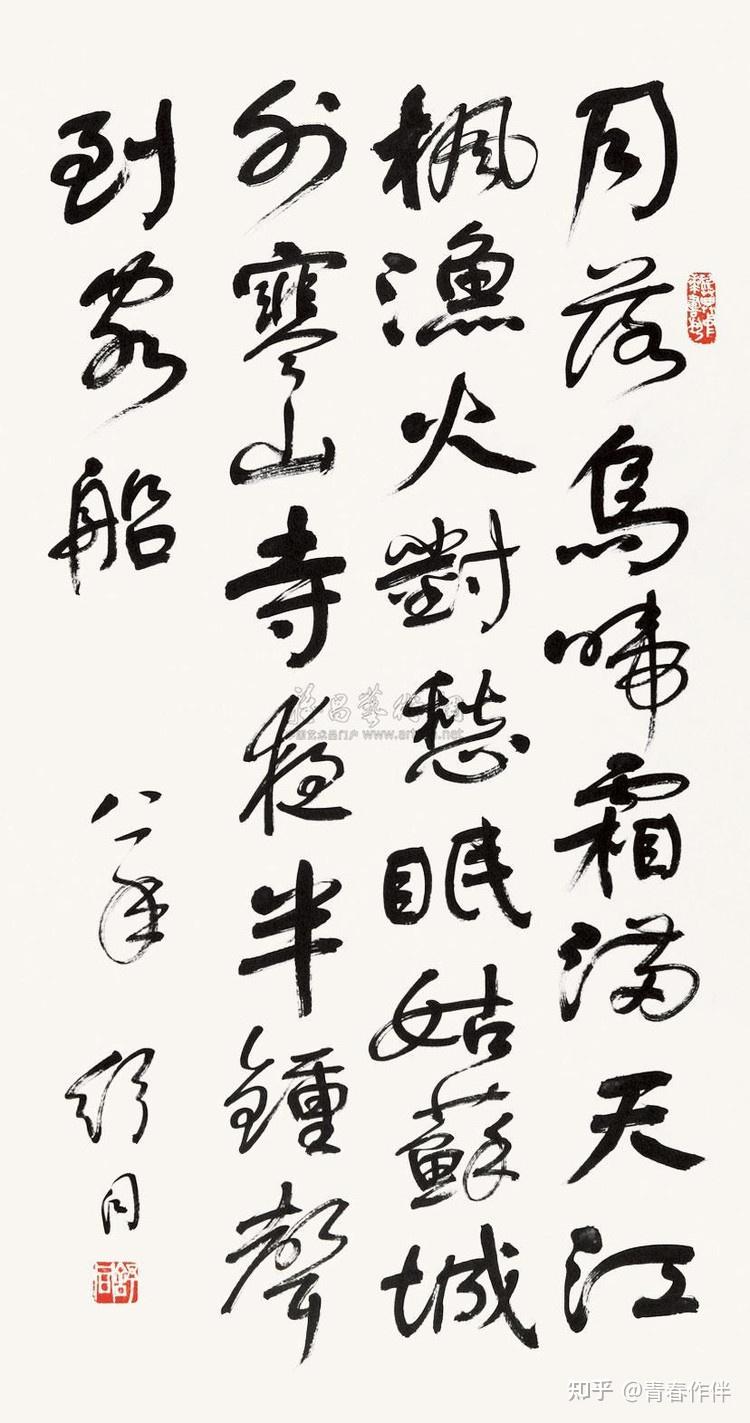 月落烏啼霜滿天江
楓漁火對愁眠姑蘇城
外寒山寺夜半鍾聲
到客船
八一年 舒同
舒同
昌藝術网
艺术品门户 www.art
知乎 @青春作伴